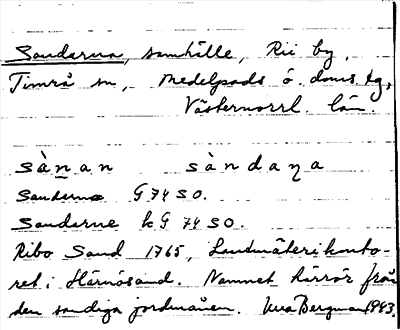 Sandarna, samhälle, Rii by,
Timrå sn, Medelpads ö. doms. tg,
Västernorrl. län.
sànan sàndaṇa
Sandarna G 74 SO.
Sandarne k G 74 SO.
Ribo Sand 1765, Lantmäterikonto-
ret i Härnösand. Namnet härrör från
den sandiga jordmånen. Vera Bergman 1943.